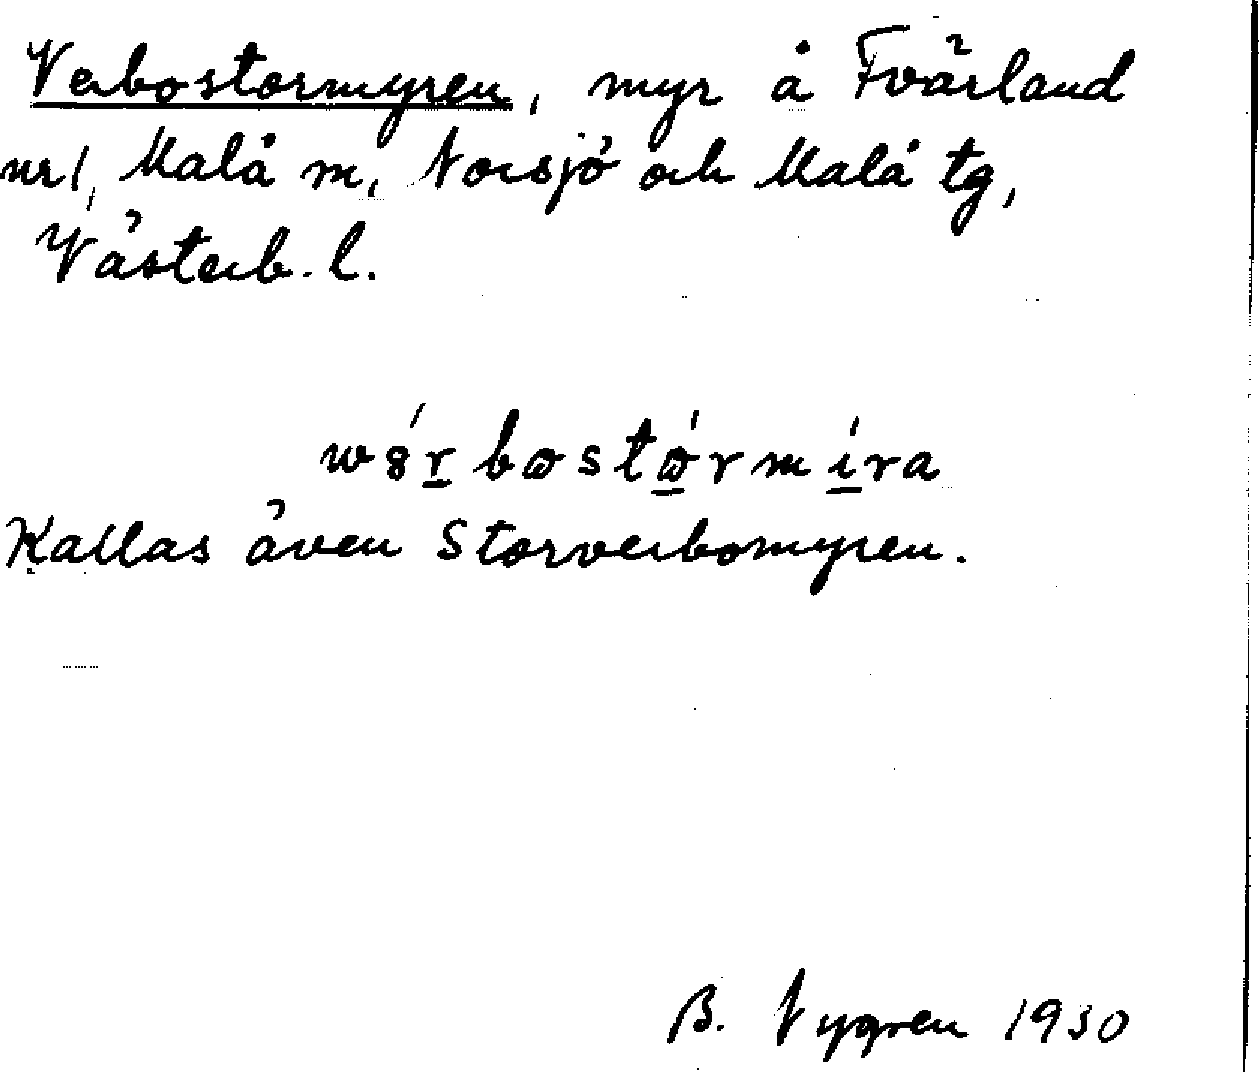 Verbostormyren, myr å Tvärland
nr 1, Malå m, Norsjö och Malå tg,
Västerb. l.
Kallas även Storverbomyren.
B. Nygren 1930